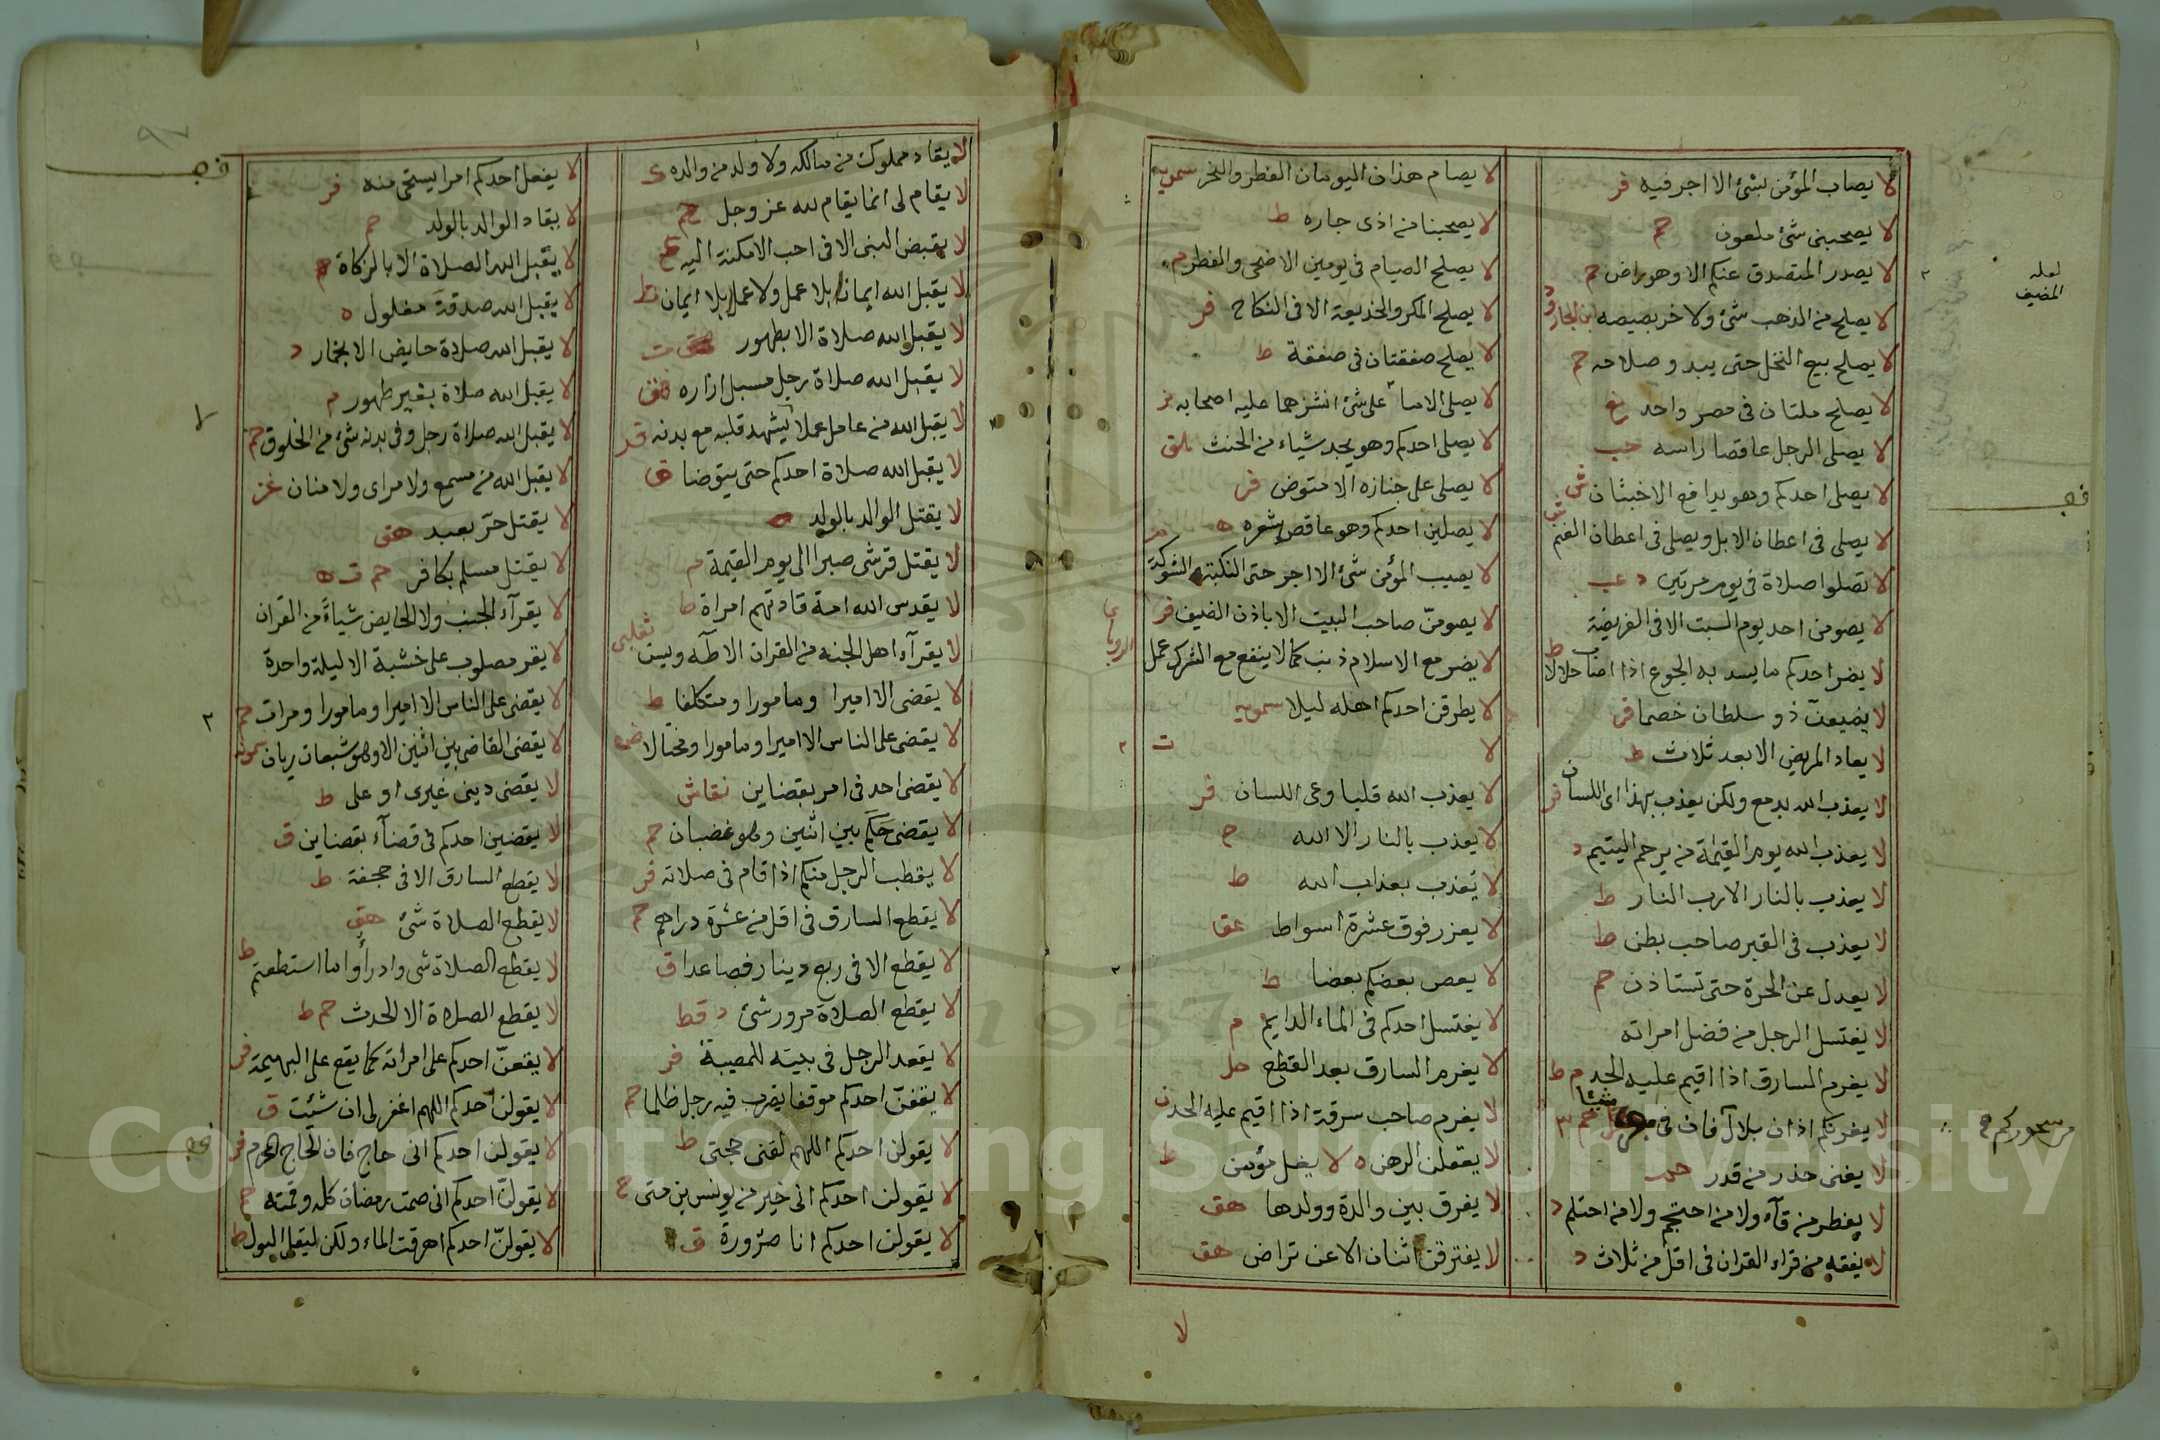 لا يصاب المؤمن بشئ الا اجر فيه فر
لا يصحبني شئ ملعون حم
لا يصدر المتصدق عنكم الا وهو راض حم
لا يصلح من الذهب شئ ولا خربصيصه ابن الجارود
لا يصلح بيع النخل حتى يبدو صلاحه حم
لا يصلح ملتان في مصر واحد
لا يصلى الرجل عاقصا راسه
لا يصلى احدكم وهو يدافع الاخبثان ش
لا يصلى في اعطان الابل ويصلى في اعطان الغنم
لا تصلوا صلاة في يوم مرتين د
لا يصومن احد يوم السبت الا في الفريضة
لا يضر احدكم ما يسد به الجوع اذا اصاب حلالا ط
لا يضيعن ذو سلطان خصما فر
لا يعاد المريض الا بعد ثلاث ط
لا يعذب الله بدمع ولكن يعذب بهذا اى اللسان فر
لا يعذب الله يوم القيمة من يرحم اليتيم د
لا يعذب بالنار الا رب النار ط
لا يعذب في القبر صاحب بطن ط
لا يعدل عن الحرة حتى تستاذن حم
لا يغتسل الرجل من فضل امراته
لا يغرم السارق اذا اقيم عليه الحد ط
لا يغرنكم اذان بلال فان في
لا يغنى حذر من قدر
لا يفطر من قآء ولا من احتجم ولا من احتلم د
لا يفقه من قراء القران في اقل من ثلاث د
لا يصام هذان اليومان الفطر والنحر سمويه
لا يصحبنا من اذى جاره ط
لا يصلح الصيام في يومين الاضحى والفطر م
لا يصلح المكر والخديعة الا في النكاح فر
لا يصلح صفقتان في صفقة ط
لا يصلى الامام على شئ انشز مما عليه اصحابه
لا يصلى احدكم وهو يجد شياء من الخبث
لا يصلى على جنازه الا متوض فر
لا يصلين احدكم وهو عاقص شعره ه
لا يصيب المؤمن شئ الا اجر حتى النكبة الشوكة
لا يصومن صاحب البيت الا باذن الضيف فر
لا يضر مع الاسلام ذنب كما لا ينفع مع الشرك عمل
لا يطرقن احدكم اهله ليلا سمويه
لا ت
لا يعذب الله قلبا وعى اللسان فر
لا يعذب بالنار الا الله
لا يعذب بعذاب الله ط
لا يعزر فوق عشرة اسواط عق
لا يعص بعضكم بعضا ط
لا يغتسل احدكم في الماء الدايم م
لا يغرم السارق بعد القطع حل
لا يغرم صاحب سرقة اذا اقيم عليه الحد ن
لا يغلق الرهن ه لا يغل مؤمن ط
لا يفرق بين والدة وولدها هق
لا يفترقن اثنان الا عن تراض هق
لا
لعله
المضيف
سحوركم
لا يقاد مملوك من مالكه ولا ولد من والده
لا يقام لى انما يقام لله عز وجل حم
لا يقبض النبى الا في احب الامكنة اليه ع
لا يقبل الله ايمان بلا عمل ولا عمل بلا ايمان ط
لا يقبل الله صلاة الا بطهور ت
لا يقبل الله صلاة رجل مسبل ازاره هق
لا يقبل الله من عامل عملا يشهد قلبه مع بدنه
لا يقبل الله صلاة احدكم حتى يتوضا ق
لا يقتل الوالد بالولد ه
لا يقتل قرشى صبرا الى يوم القيمة م
لا يقدس الله امة قادتهم امراة ط
لا يقرآء اهل الجنه من القران الا طه ويس ثعلبى
لا يقضى الا اميرا ومامورا ومتكلفا ط
لا يقضى على الناس الا اميرا ومامورا ومختالا
لا يقضى احد في امر بقضاين نقاش
لا يقضى حكم بين اثنين وهو غضبان حم
لا يقطب الرجل منكم اذا قام في صلاته فر
لا يقطع السارق في اقل من عشرة دراهم حم
لا يقطع الا في ربع دينار فصاعدا ق
لا يقطع الصلاة مرور شئ د قط
لا يقعد الرجل في بيته للمصيبة فر
لا يقفن احدكم موقفا يضرب فيه رجل ظلما حم
لا يقولن احدكم اللهم لقنى حجتى ط
لا يقولن احدكم انى خير من يونس بن متى ح
لا يقولن احدكم انا صرورة ق
لا يفعل احدكم امرا يستحى منه فر
لا يقاد الوالد بالولد حم
لا يقبل الله الصلاة الا بالزكاة حم
لا يقبل الله صدقة من غلول ه
لا يقبل الله صلاة حايض الا بخمار د
لا يقبل الله صلاة بغير طهور م
لا يقبل الله صلاة رجل وفى بدنه شئ من الخلوق حم
لا يقبل الله من مسمع ولا مراى ولا منان
لا يقتل حر بعبد هق
لا يقتل مسلم بكافر حم ت ه
لا يقرآء الجنب ولا الحايض شياء من القران
لا يقر مصلوب على خشبة الا ليلة واحدة
لا يقضى على الناس الا اميرا ومامورا ومرات حم
لا يقضى القاضى بين اثنين الا وهو شبعان ريان سمويه
لا يقضى دينى غيرى او على ط
لا يقضين احدكم في قضآء بقضاين ق
لا يقطع السارق الا في حجفة ط
لا يقطع الصلاة شئ هق
لا يقطع الصلاة شى وادرأوا ما استطعتم ط
لا يقطع الصلاة الا الحدث حم ط
لا يقعن احدكم على امراته كما يقع على البهيمة فر
لا يقولن احدكم اللهم اغفر لى ان شئت ق
لا يقولن احدكم انى حاج فان الحاج المحرم فر
لا يقولن احدكم انى صمت رمضان كله وقمته
لا يقولن احدكم اهرقت الماء ولكن ليقل البول ط
Copyright © King Saud University
1957